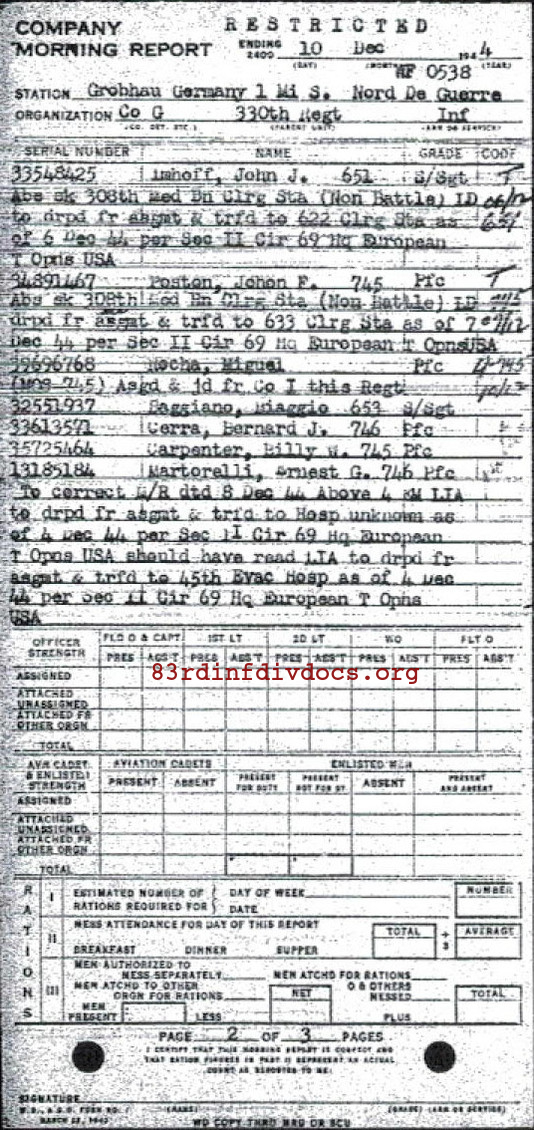 RESTRICTED
COMPANY
MORNING REPORT
ENDING 2400 10 Dec 1944
(DAY) (MONTH) (YEAR)
HF 0538
STATION Grobhau Germany 1 Mi S. Nord De Guerre
ORGANIZATION Co G 330th Regt Inf
(CO. DET. ETC.) (PARENT UNIT) (ARM OR SERVICE)
SERIAL NUMBER NAME GRADE CODE
33548425 Imhoff, John J. 651 S/Sgt T
Abs sk 308th Med Bn Clrg Sta (Non Battle) LD
to drpd fr asgmt & trfd to 622 Clrg Sta as
of 6 Dec 44 per Sec II Cir 69 Hq European
T Opns USA
34891467 Poston, Johon F. 745 Pfc T
Abs sk 308th Med Bn Clrg Sta (Non Battle) LD
drpd fr asgmt & trfd to 633 Clrg Sta as of 7
Dec 44 per Sec II Cir 69 Hq European T OpnsUSA
39696768 Rocha, Miguel Pfc
(MOS 745) Asgd & jd fr Co I this Regt
32551937 Saggiano, Biaggio 653 S/Sgt
33613571 Cerra, Bernard J. 746 Pfc
35725464 Carpenter, Billy W. 745 Pfc
13185184 Martorelli, Ernest G. 746 Pfc
To correct M/R dtd 8 Dec 44 Above 4 EM LIA
to drpd fr asgmt & trfd to Hosp unknown as
of 4 Dec 44 per Sec II Cir 69 Hq European
T Opns USA should have read LIA to drpd fr
asgmt & trfd to 45th Evac Hosp as of 4 Dec
44 per Sec II Cir 69 Hq European T Opns
USA
OFFICER STRENGTH FLD O & CAPT 1ST LT 2D LT WO FLT O
PRES ABS'T PRES ABS'T PRES ABS'T PRES ABS'T PRES ABS'T
83rdinfdivdocs.org
ASSIGNED
ATTACHED UNASSIGNED
ATTACHED FR OTHER ORGN
TOTAL
AVN CADET & ENLISTED STRENGTH AVIATION CADETS ENLISTED MEN
PRESENT ABSENT PRESENT FOR DUTY PRESENT NOT FOR DY ABSENT PRESENT AND ABSENT
ASSIGNED
ATTACHED UNASSIGNED
ATTACHED FR OTHER ORGN
TOTAL
RATIONS
I ESTIMATED NUMBER OF RATIONS REQUIRED FOR DAY OF WEEK NUMBER
DATE
II MESS ATTENDANCE FOR DAY OF THIS REPORT TOTAL ÷ 3 AVERAGE
BREAKFAST DINNER SUPPER
III MEN AUTHORIZED TO MESS SEPARATELY MEN ATCHD FOR RATIONS
MEN ATCHD TO OTHER ORGN FOR RATIONS NET O & OTHERS MESSED TOTAL
MEN PRESENT LESS PLUS
PAGE 2 OF 3 PAGES
I CERTIFY THAT THIS MORNING REPORT IS CORRECT AND
THAT RATION FIGURES IN PART II REPRESENT AN ACTUAL
COUNT AS REPORTED TO ME:
SIGNATURE
W.D., A.G.O. FORM NO. 1 (NAME) (GRADE) (ARM OR SERVICE)
MARCH
WD COPY THRU MRU OR SCU